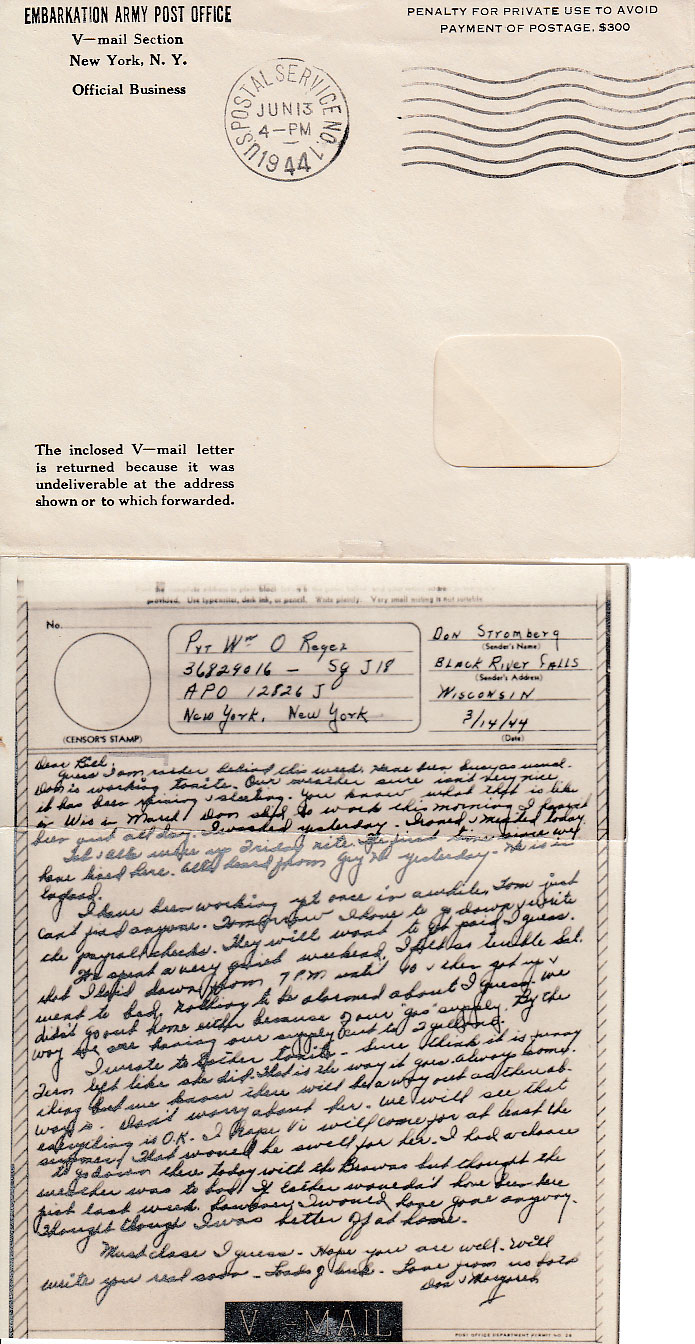 EMBARKATION ARMY POST OFFICE
V—mail Section
New York, N. Y.
Official Business
PENALTY FOR PRIVATE USE TO AVOID
PAYMENT OF POSTAGE, $300
U.S. POSTAL SERVICE NO. 1
JUN 13
4-PM
1944
The inclosed V—mail letter
is returned because it was
undeliverable at the address
shown or to which forwarded.
provided. Use typewriter, dark ink, or pencil. Write plainly. Very small writing is not suitable.
No.
(CENSOR'S STAMP)
Pvt Wm O Reger
36829016 - Sg J 18
APO 12826 J
New York, New York
Don Stromberg
(Sender's Name)
Black River Falls
(Sender's Address)
Wisconsin
3/14/44
(Date)
Dear Bill,
Guess I am rather behind this week. Have been busy as usual.
Don is working tonite. Our weather sure isn't very nice
it has been raining & sleeting. You know what that is like
in Wis in March! Don slept to work this morning. I haven't
been out all day. I washed yesterday. Ironed & mended today.
were up Friday nite. The first time since we
have lived here. heard from Guy yesterday. He is in
England.
I have been working yet once in a while. Tom just
can't find anyone. Tomorrow I have to go down & write
the payroll checks. They will want to get paid I guess.
We spent a very quiet weekend. I felt so terrible Sat.
that I laid down from 7 PM until 10 & then got up &
went to bed. Nothing to be alarmed about I guess. We
didn't go out home either because of our "gas" supply. By the
way we are having our supply cut to 2 gallons.
I wrote to Esther tonite. Sure think it is funny
left like she did. That is the way it goes always some-
thing but we know there will be a way out as there al-
ways is. Don't worry about her. We will see that
everything is O.K. I hope Vi will come for at least the
summer. That would be swell for her. I had a chance
to go down there today with the Browns but thought the
weather was to bad. If Esther wouldn't have been here
just last week however I would have gone anyway.
Thought though I was better off at home.
Must close I guess. Hope you are well. Will
write you real soon. Loads of luck. Love from us both
Don & Margaret
V - MAIL
POST OFFICE DEPARTMENT PERMIT NO. 28